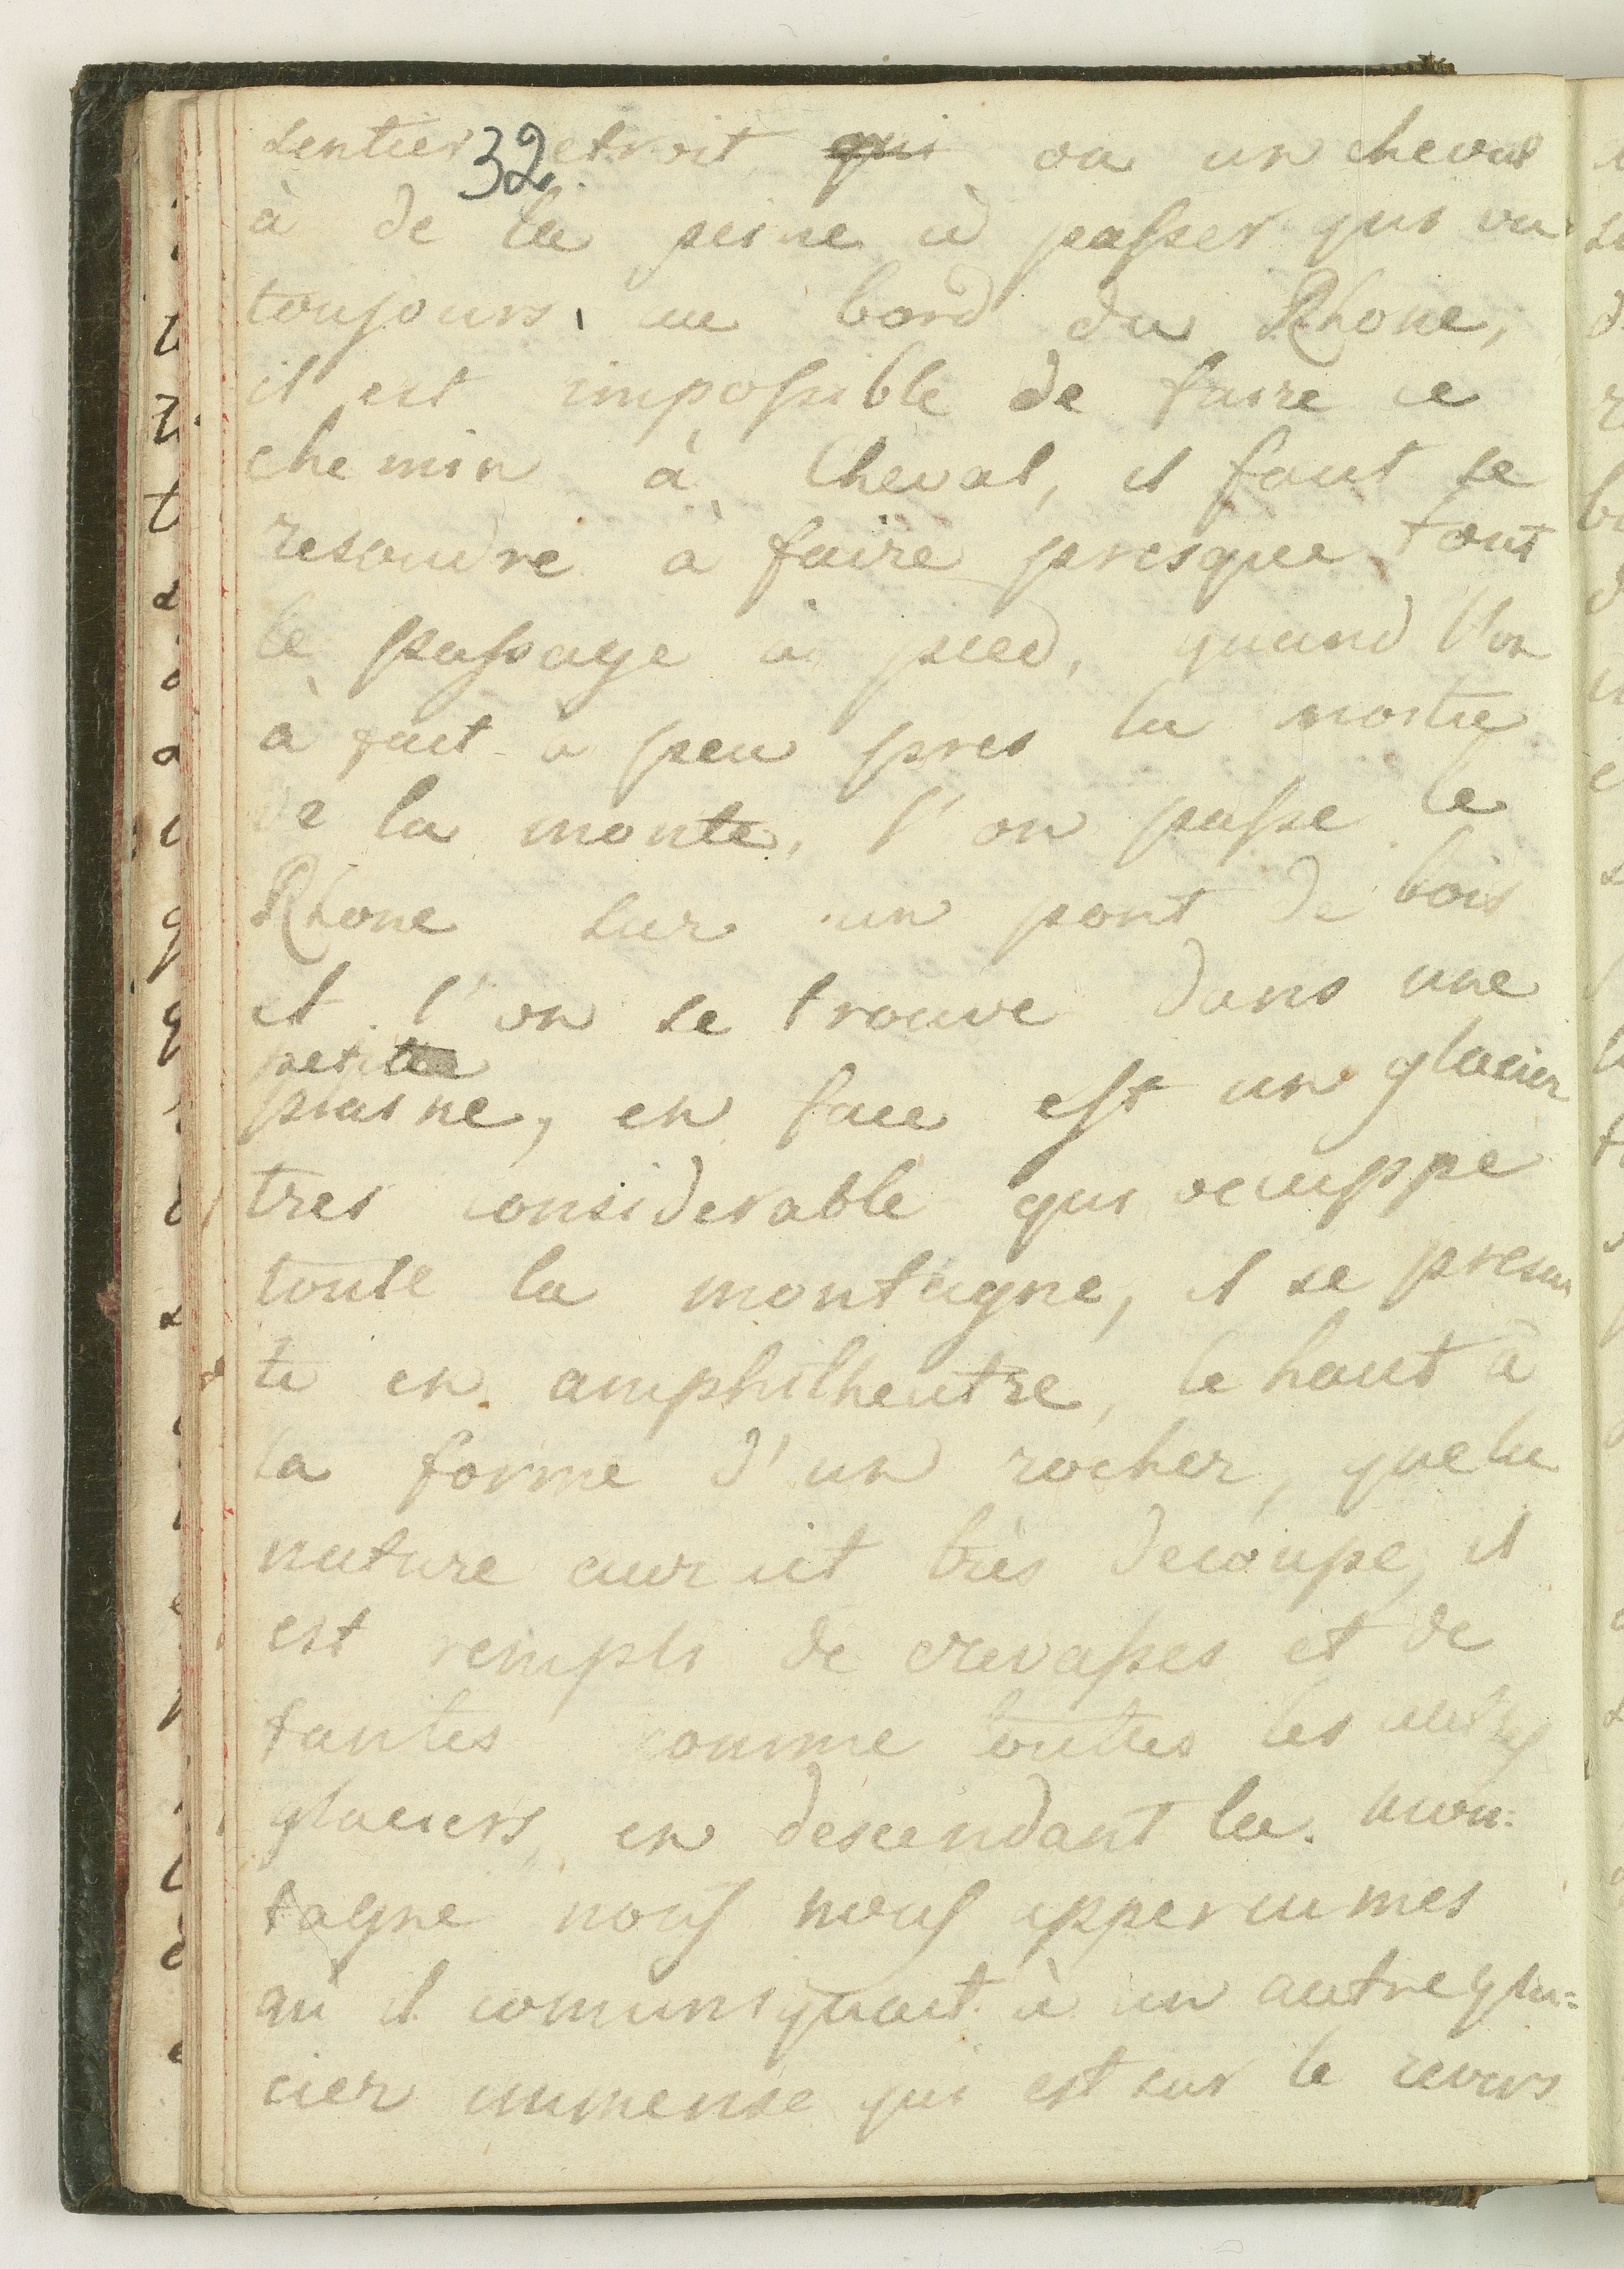 32
sentier etroit qui ou un cheval
à de la peine à passer qui va
toujours au bord du Rhone,
il est impossible de faire ce
chemin à cheval, il faut se
resoudre à faire presque tout
le passage à pied, quand l'on
à fait à peu pres la moitie
de la monte, l'on passe le
Rhone sur un pont de bois
et l'on se trouve dans une
petite
plaine, en face est un glacier
tres considerable qui ocuppe
toute la montagne, il se presen
te en amphitheatre, le haut à
la forme d'un rocher, que la
nature aurait très decoupe, il
est rempli de crevasses et de
fantes comme toutes les autres
glaciers, en descendant la mon:
tagne nous nous apperçumes
qu'il comuniquait à un autre gla=
cier immense qui est sur le revers